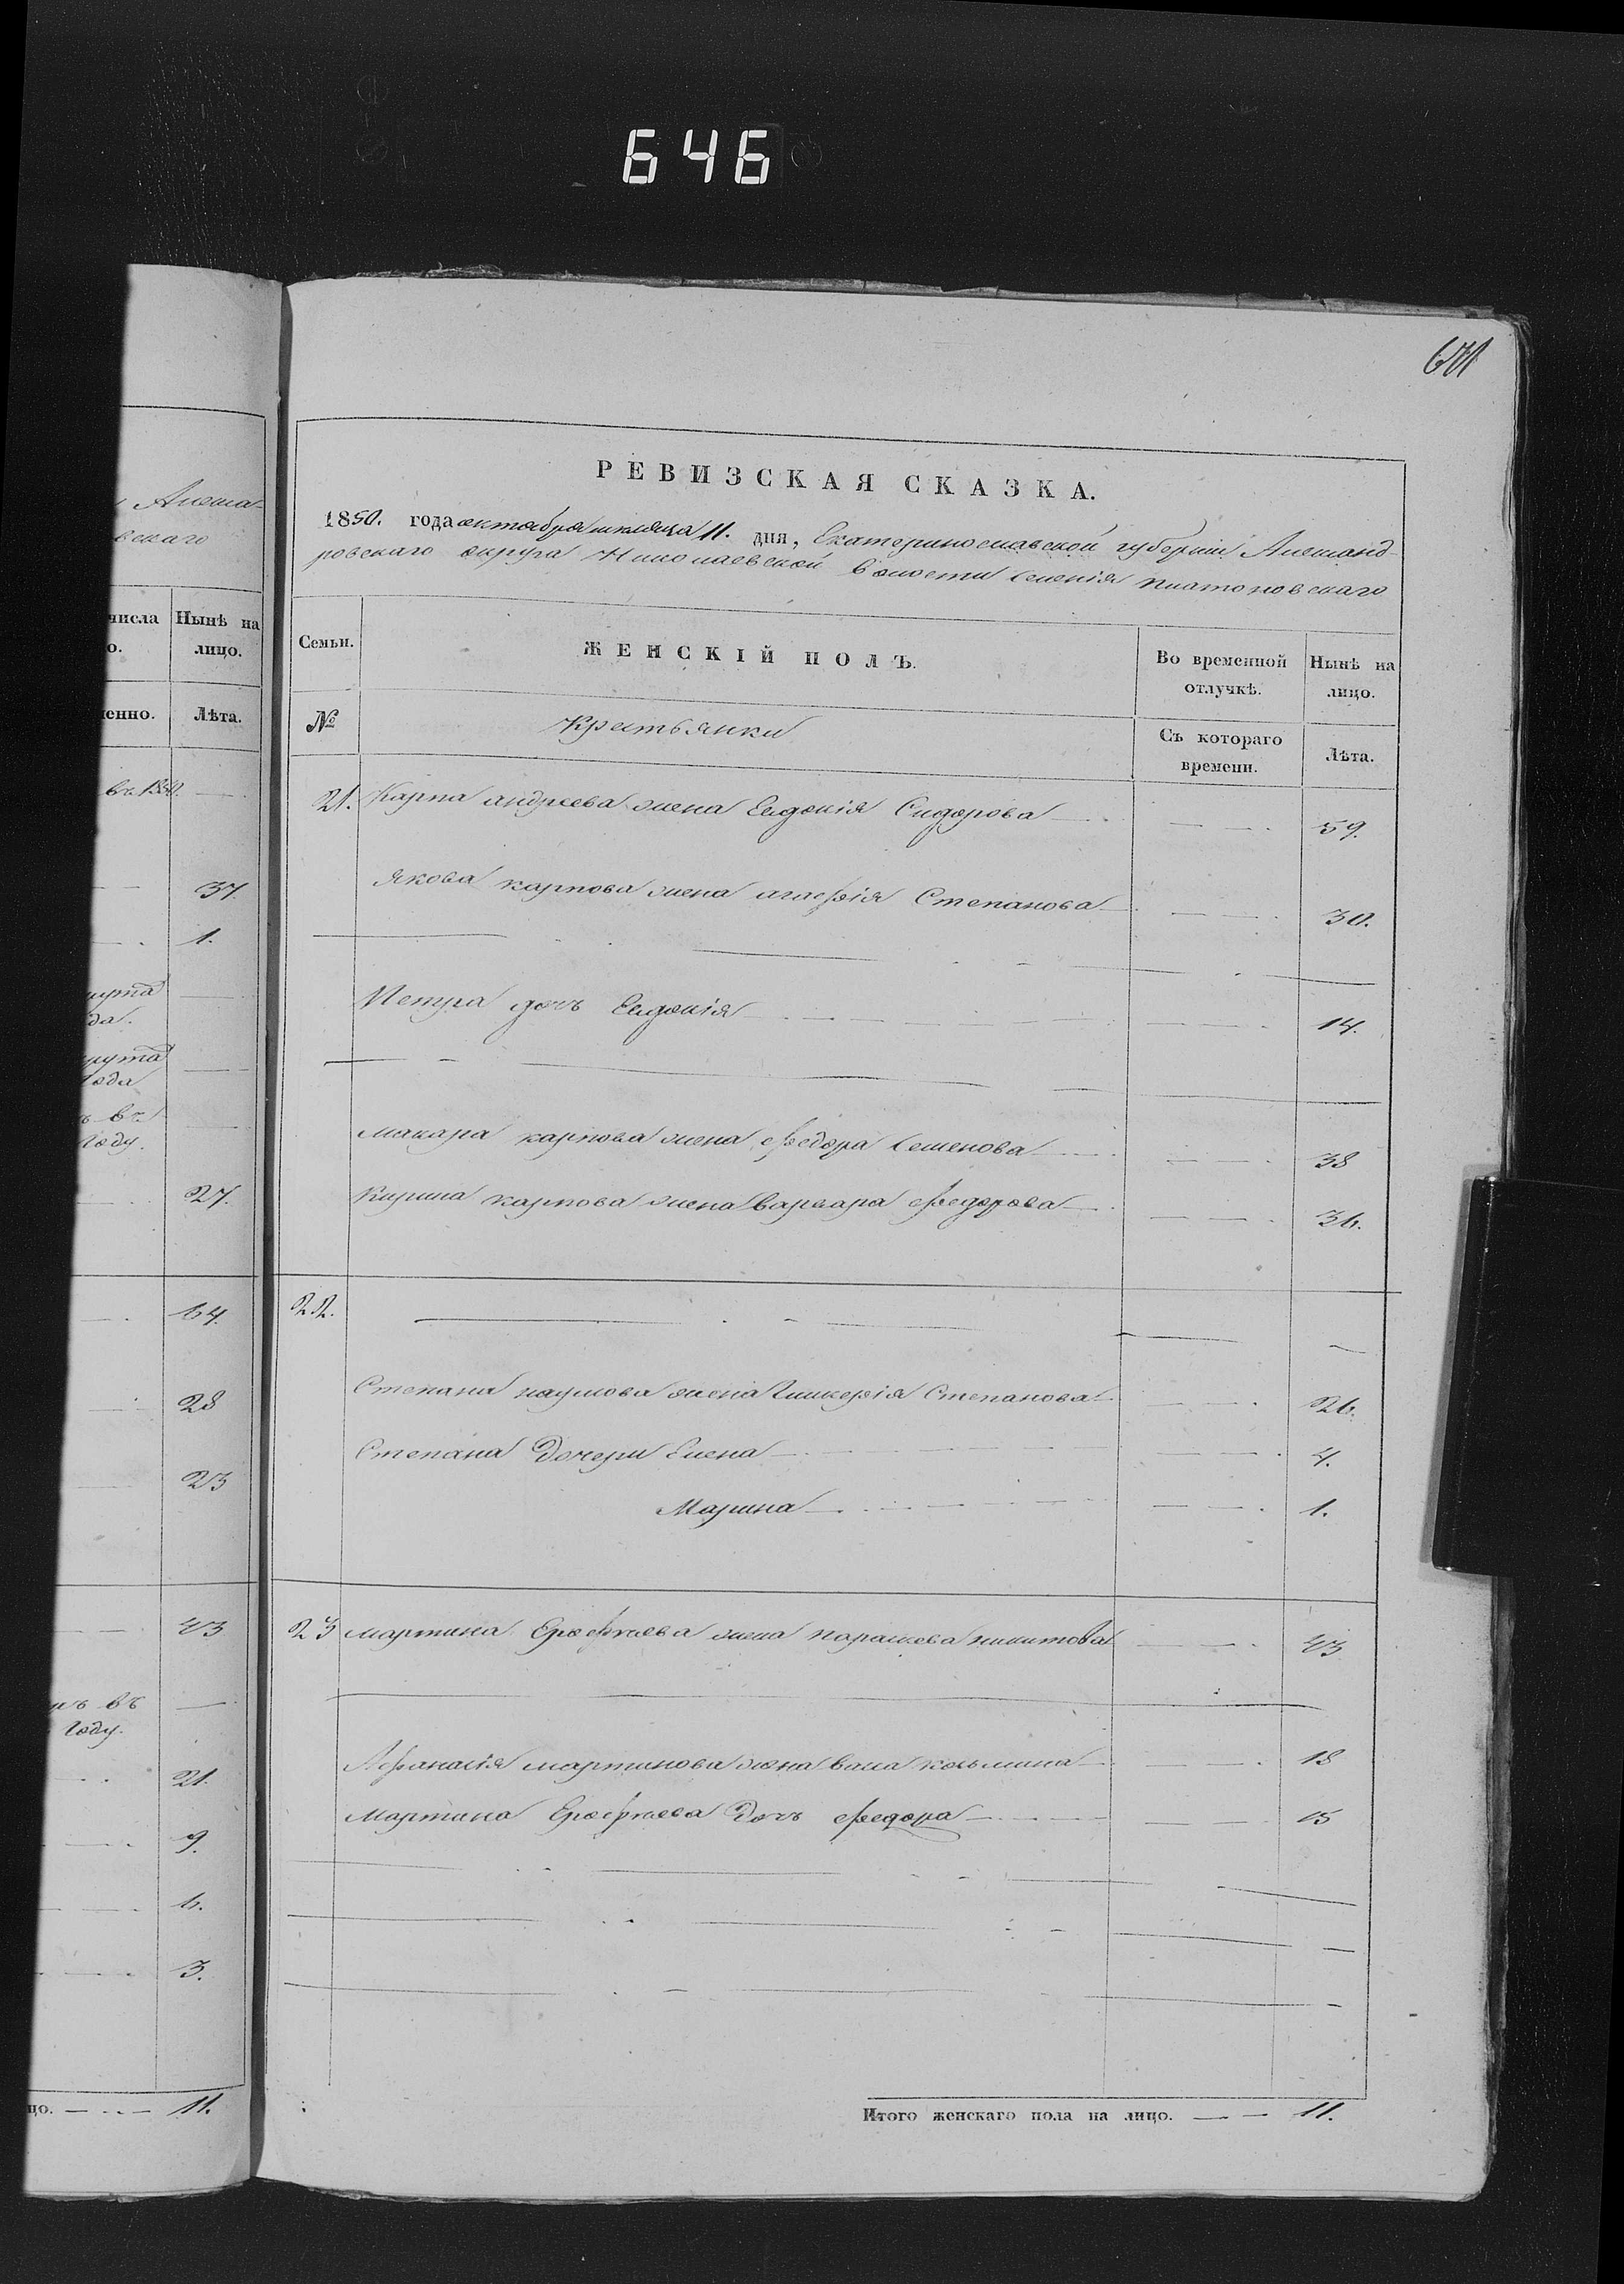 646
РЕВИЗСКАЯ СКАЗКА.
1850. года октября месяца 11. дня, Екатеринославской губернiи Александ-
ровскаго округа Николаевской волости селенiя Платоновскаго
Алекса-
вскаго
числа
о.
Нынѣ на
лицо.
енно.
Лѣта.
въ 1840.
37.
1.
да.
года
въ
году.
27.
64.
28
23
43
въ
году.
21.
9.
6.
3.
цо. 11.
Семьи.
ЖЕНСКIЙ ПОЛЪ.
Во временной
отлучкѣ.
Нынѣ на
лицо.
№
Крестьянки
Съ котораго
времени.
Лѣта.
21. Карпа андреева жена Евдокiя Сидорова 59.
якова карпова жена агафiя Степанова 30.
Петра дочь Евдокiя 14.
макара карпова жена федора семенова 38
Кирила карпова жена варвара федорова 36.
22.
Степана наумова жена Гликерiя Степанова 26.
Степана Дочери Елена 4.
Марина 1.
23 мартина Ерофѣева жена параскева никитова 43
Афанасiя мартинова жена васа козьмина 18
Мартина Ерофѣева Дочь федора 15
Итого женскаго пола на лицо. 11.